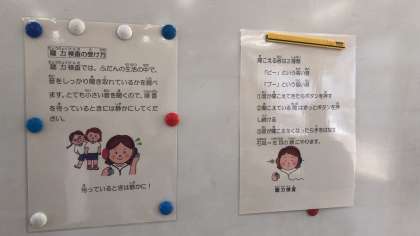 聴力検査の受け方
聴力検査では、ふだんの生活の中で、
音をしっかり聞き取れているかを調べ
ます。とても小さい音を聞くので、検査
を待っているときには静かにしてくだ
さい。
待っているときは静かに!
聞こえる音は2種類
「ピー」という高い音
「ブー」という低い音
①音が聞こえてきたらボタンを押す
②聞こえている間はずっとボタンを押
し続ける
③音が聞こえなくなったら手をはなす
右耳→左耳の順にやります。
聴力検査